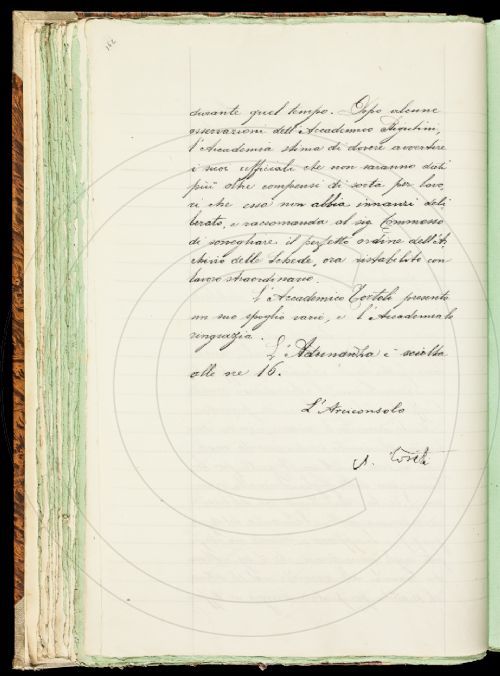 durante quel tempo. Dopo alcune
osservazioni dell'Accademico Rigutini,
l'Accademia stima di dovere avvertire
i suoi ufficiali che non saranno dati
più altri compensi di sorta per lavo
ri che essa non abbia innanzi deli
berato, e raccomanda al sig. Commesso
di sorvegliare il perfetto ordine dell'Ar
chivio delle Schede, ora ristabilito con
lavoro straordinario.
L'Accademico Tortoli presenta
un suo spoglio vario, e l'Accademia lo
ringrazia.
L'Adunanza è sciolta
alle ore 16.
L'Arciconsolo
A. Conti